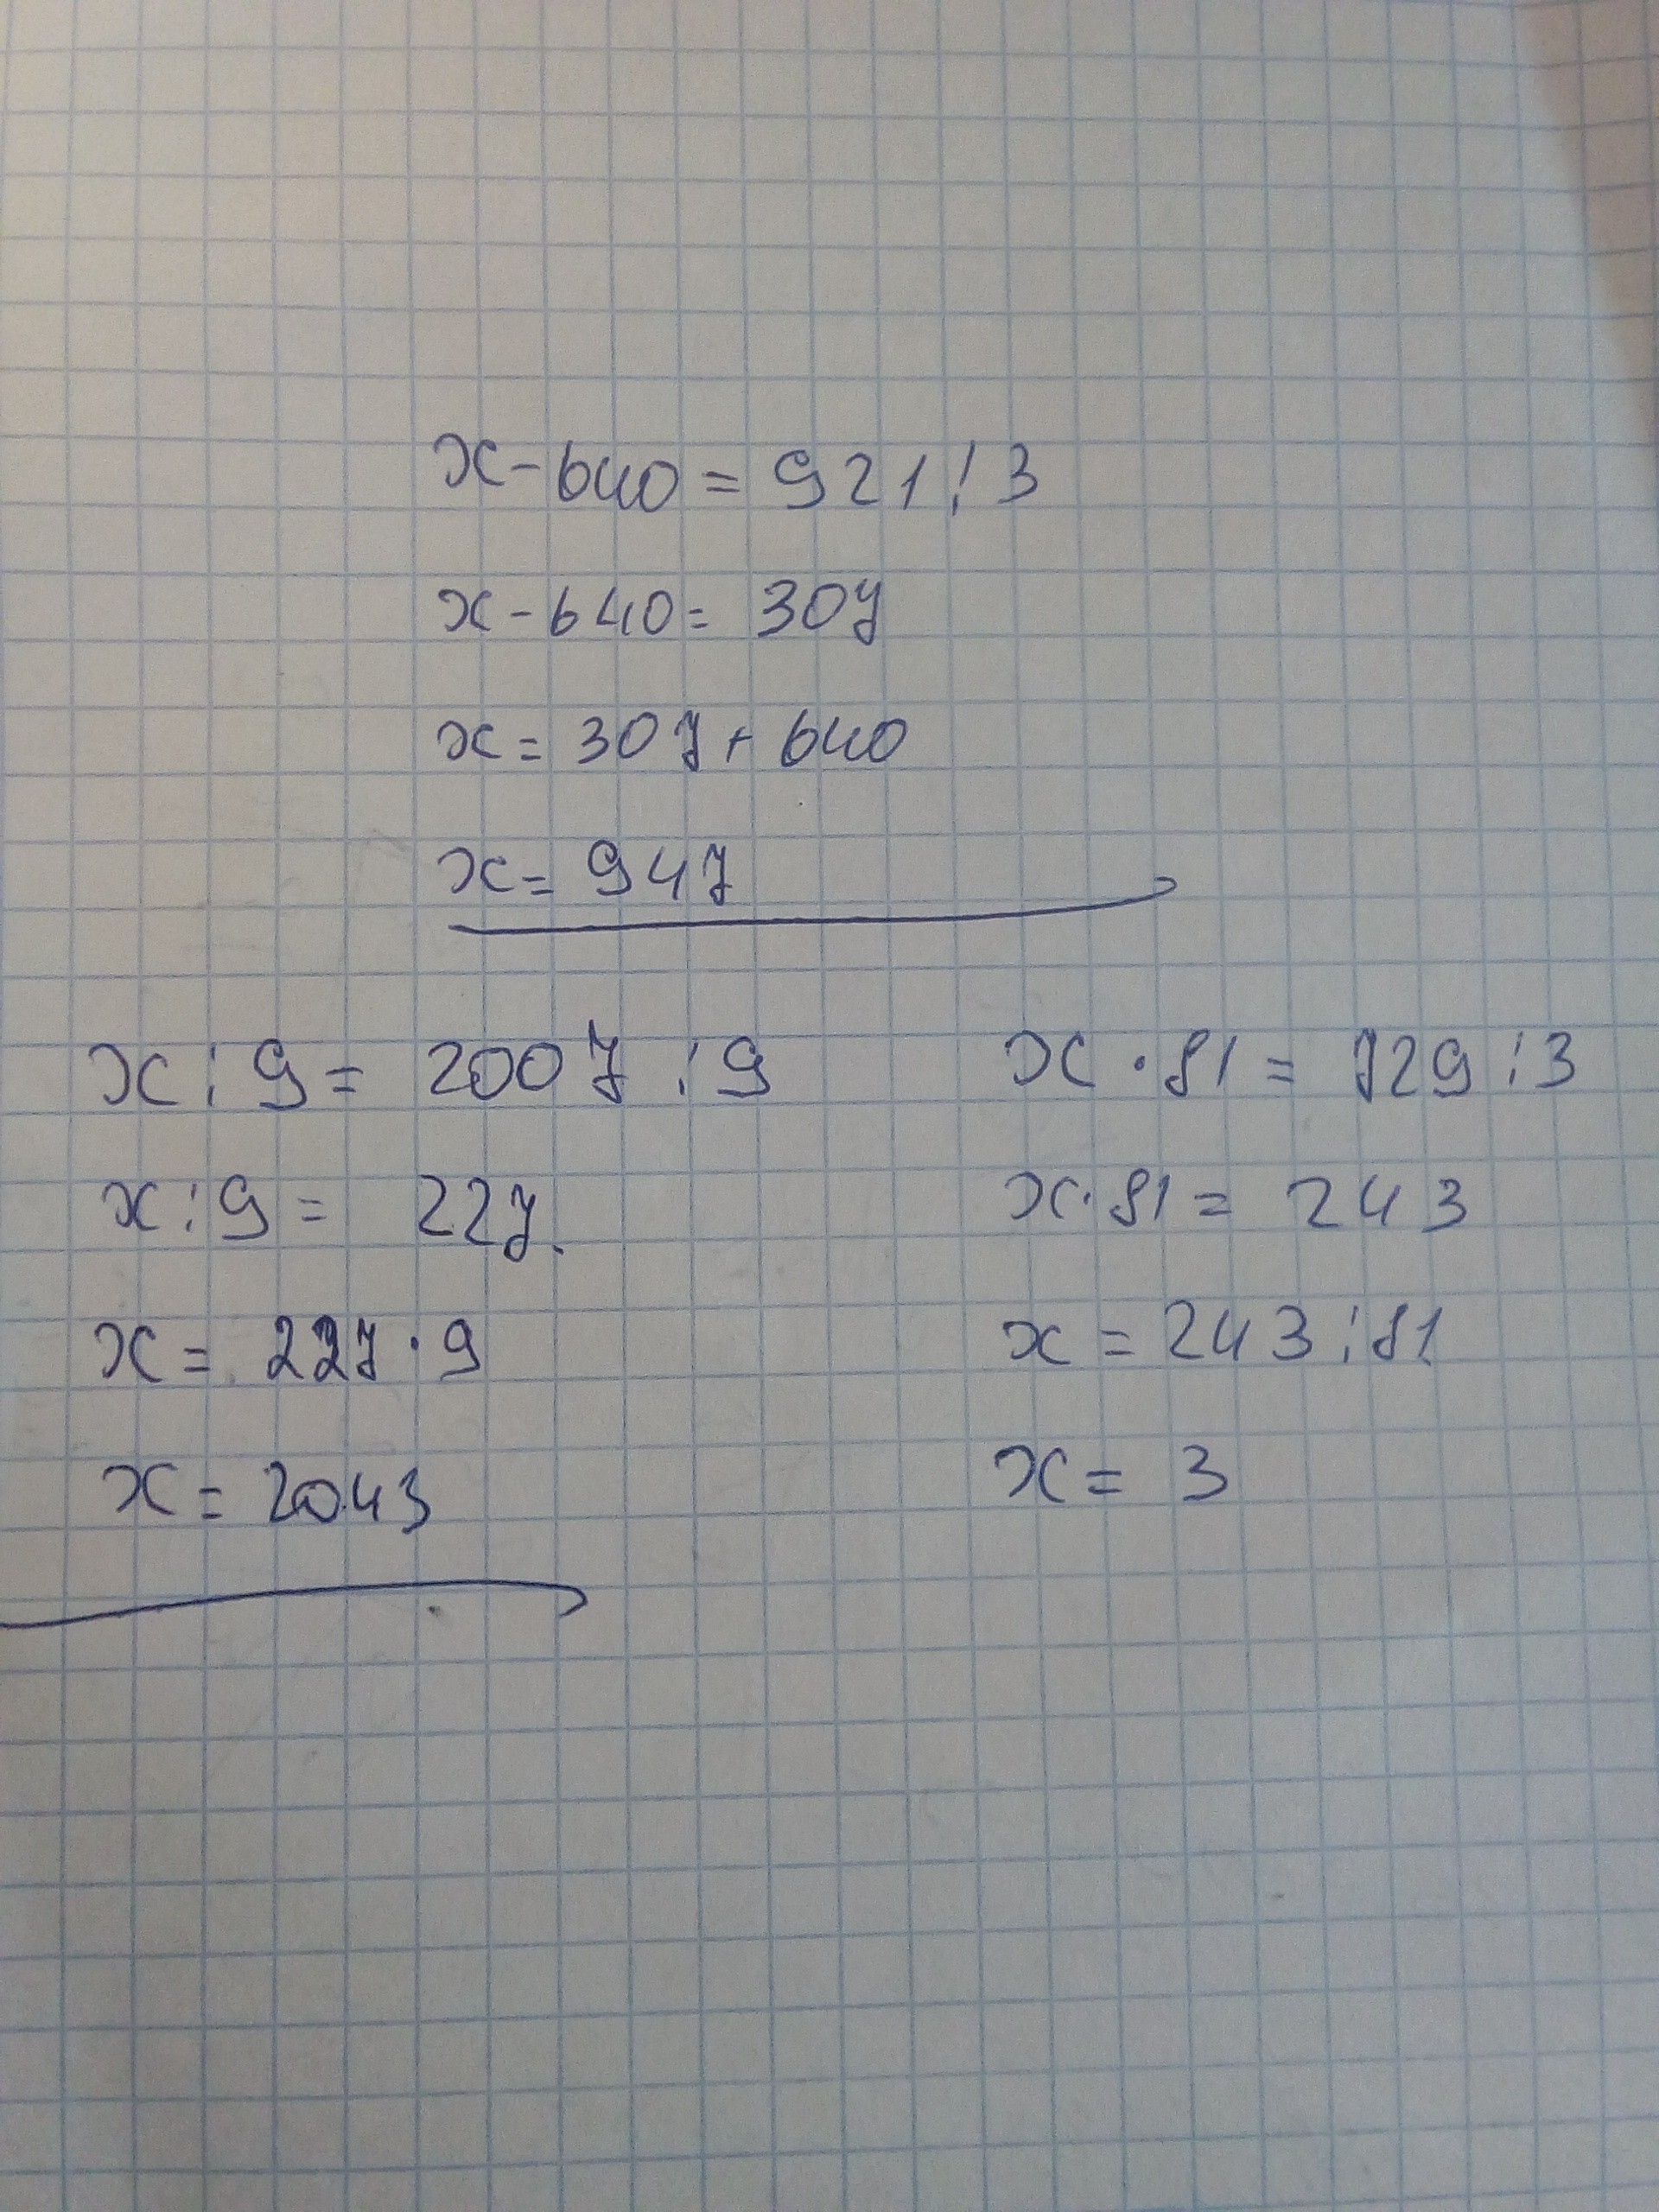 x-640=921:3
x-640=307
x=307+640
x=947
x:9=2007:9
x:9=227.
x=227·9
x=2043
x·81=729:3
x·81=243
x=243:81
x=3